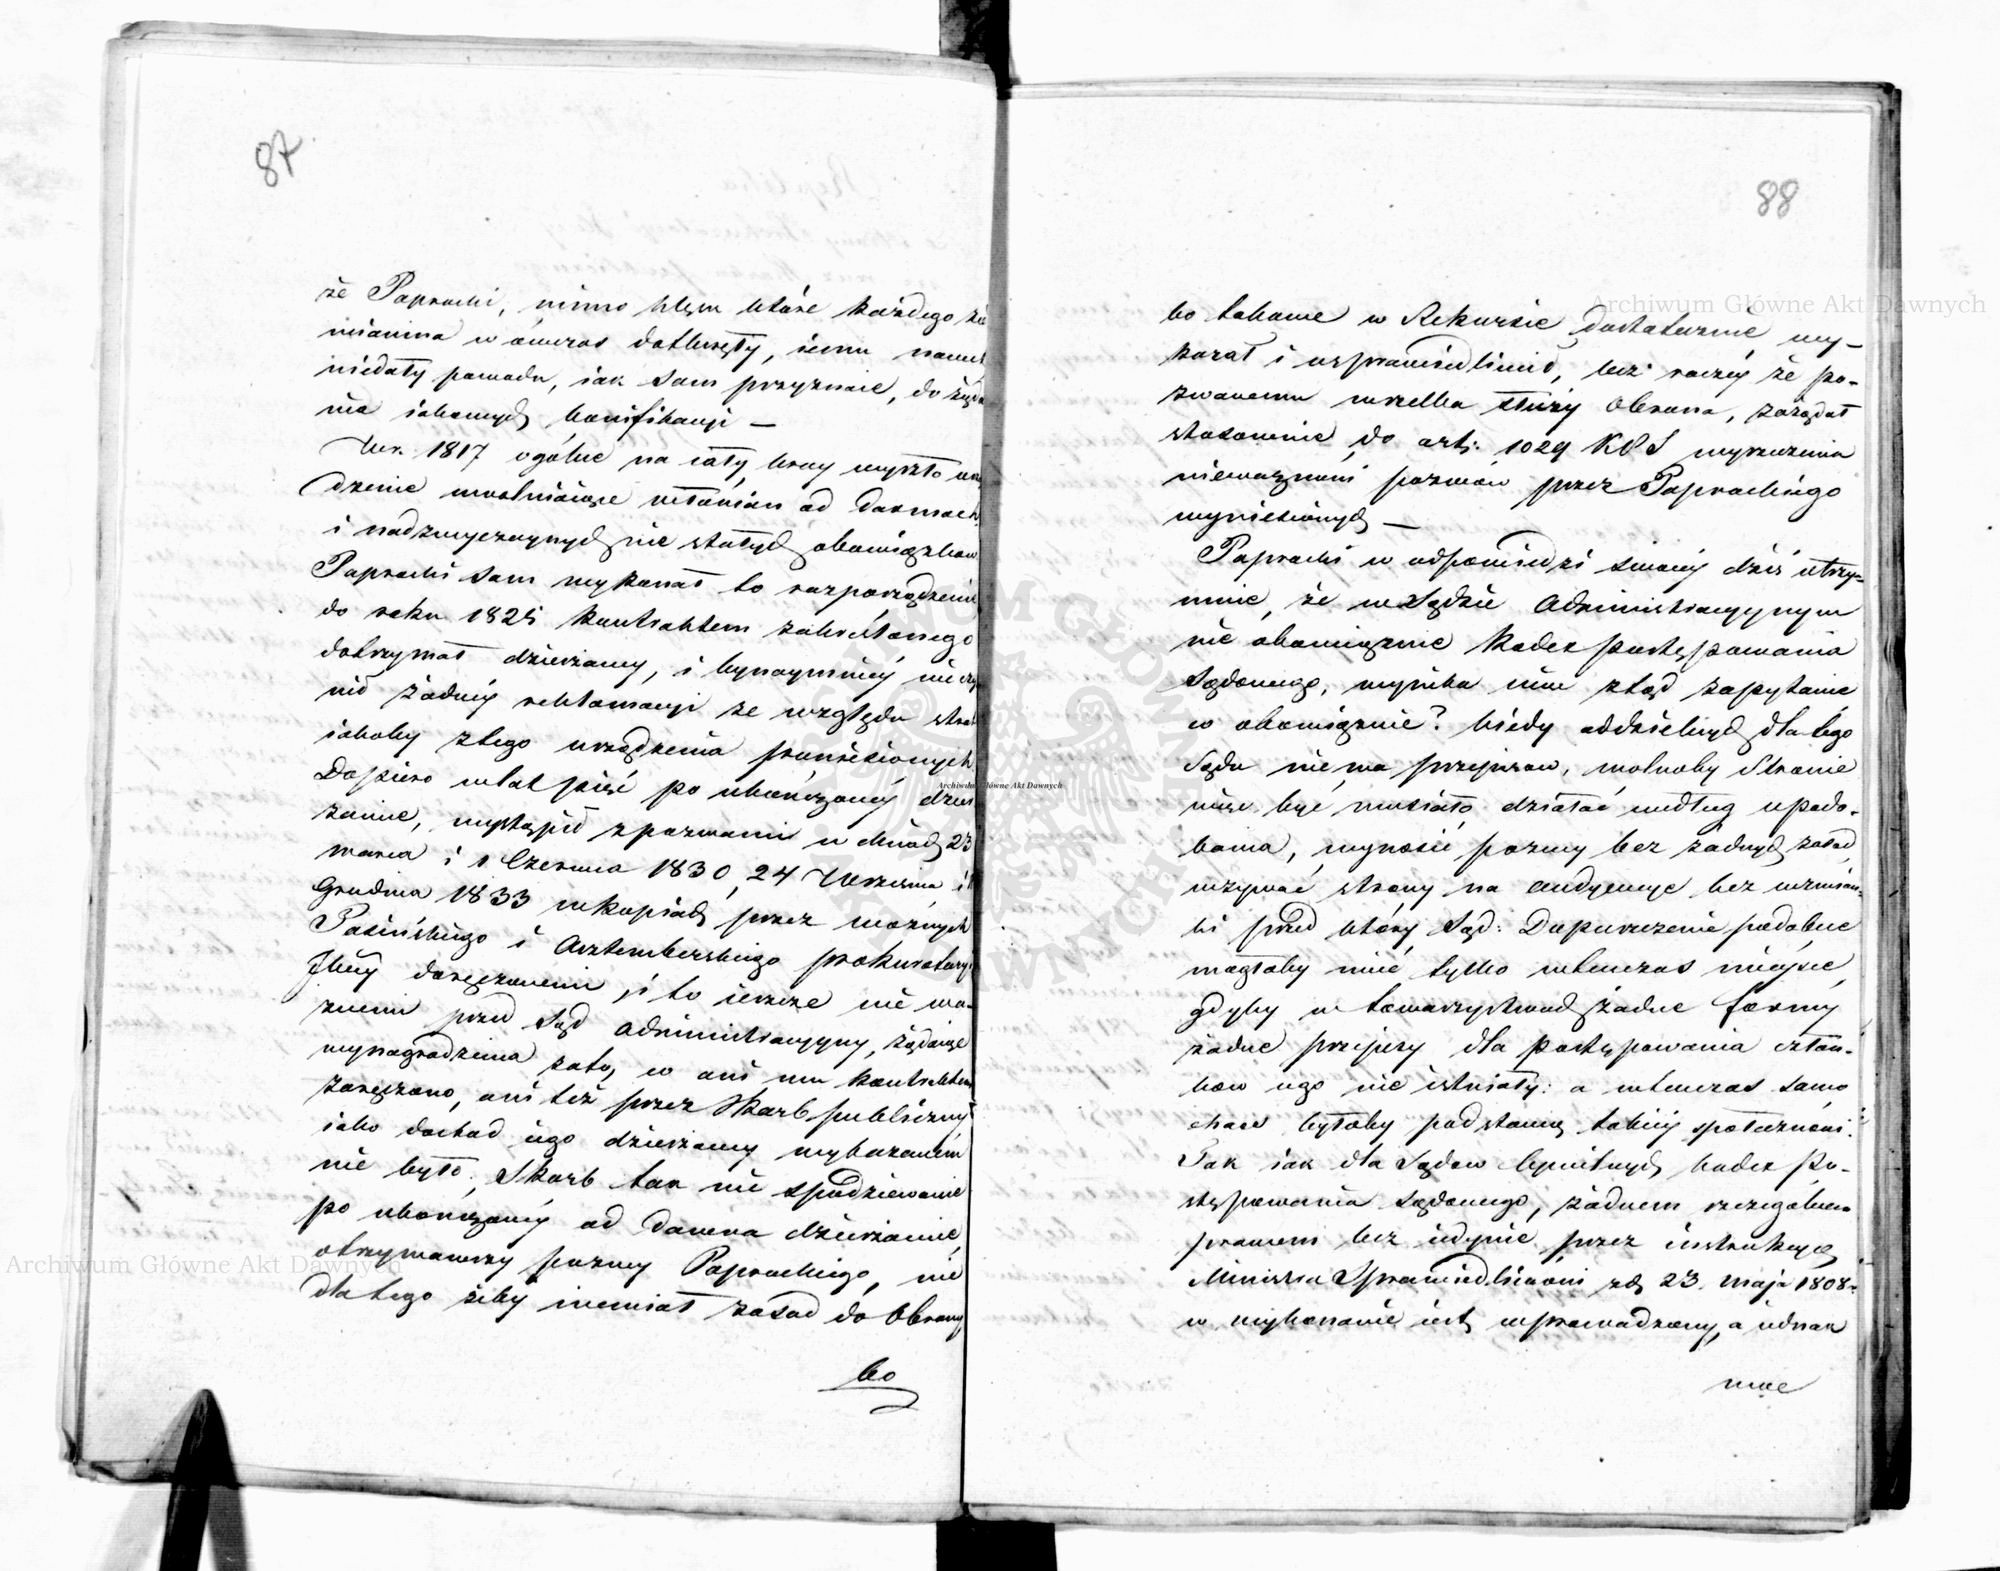 87
że Paprocki, mimo klęsk które każdego zie
mianina wówczas dotknęły, iemu nawet
niedały powodu, iak sam przyznaie, do żąda
nia iakowych bonifikacyi —
W r. 1817 ogólne na cały kray wyszło urzą
dzenie uwalniaiące włościan od darmoch
i nadzwyczaynych nie stałych obowiązków
Paprocki sam wykonał to rozporządzenie
do roku 1825 kontraktem zakreślonego
dotrzymał dzierżawy, i bynaymniéy nie czy
nił żadnéy reklamacyi ze względu strat
iakoby z tego urządzenia poniesionych
Dopiero w lat pięć po ukończonéy dzier
żawie, wystąpił z pozwami w dniach 23
marca i 1 Czerwca 1830, 24 Września i
Grudnia 1833 w kopiach przez woźnych
Pasińskiego i Asztemberskiego prokuratoryi
Jlnéy doręczonemi, i to ieszcze nie wa-
znemi przed Sąd Administracyyny, żądaiąc
wynagrodzenia za to, co ani mu kontraktem
zaręczono, ani też przez Skarb publiczny
iako dochód iego dzierżawy wykazaném
nie było. Skarb tak nie spodziewanie
po ukończonéy od dawna dzierżawie,
otrzymawszy pozwy Paprockiego, nie
dla tego żeby niemiał zasad do Obrony
bo
88
bo takowe w Rekursie dostatecznie wy-
kazał i usprawiedliwił, lecz raczéy że po-
zwanemu wszelka służy Obrona, zażądał
stosownie do art: 1029 KPS wyrzeczenia
nieważności pozwów przez Paprockiego
wyniesionych —
Paprocki w odpowiedzi swoiéy dziś utrzy-
muie, że w Sądzie Administracyynym
nie obowiązuie Kodex postępowania
Sądowego, wynika więc ztąd zapytanie
co obowiązuie? kiedy oddzielnych dla tego
Sądu nie ma przepisow, wolnoby Stronie
więc być musiało działać według upodo-
bania, wynosić pozwy bez żadnych zasad
wzywać strony na audyencye bez wzmian-
ki przed który Sąd: Dopuszczenie podobne
mogłoby mieć tylko wtenczas mieysce,
gdyby w towarzystwach żadne formy
żadne przepisy dla postępowania człon-
kow iego nie istniały: a wtenczas samo
chaos byłoby podstawą takiéy społeczności.
Tak iak dla Sądow Cywilnych kodex Po-
stępowania Sądowego, żadnem szczególnem
prawem lecz iedynie przez instrukcyę
Ministra Sprawiedliwości z d. 23. maja 1808 r.
w wykonanie iest wprowadzony, a iednak
moc
Archiwum Główne Akt Dawnych
Archiwum Główne Akt Dawnych
Archiwum Główne Akt Dawnych
ARCHIWUM GŁÓWNE AKT DAWNYCH